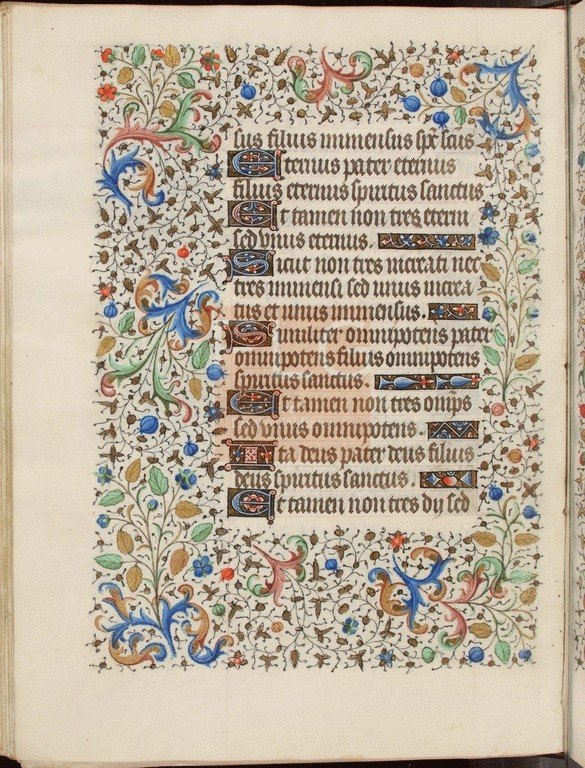 sus filius immensus spc̄ scūs
Eternus pater eternus
filius eternus spiritus sanctus
Et tamen non tres eterni
sed vnus eternus.
Sicut non tres increati nec
tres immensi sed unus increa
tus et unus immensus.
Similiter omnipotens pater
omnipotens filius omnipotens
spiritus sanctus.
Et tamen non tres omīps
sed vnus omnipotens.
Ita deus pater deus filius
deus spiritus sanctus.
Et tamen non tres dij sed